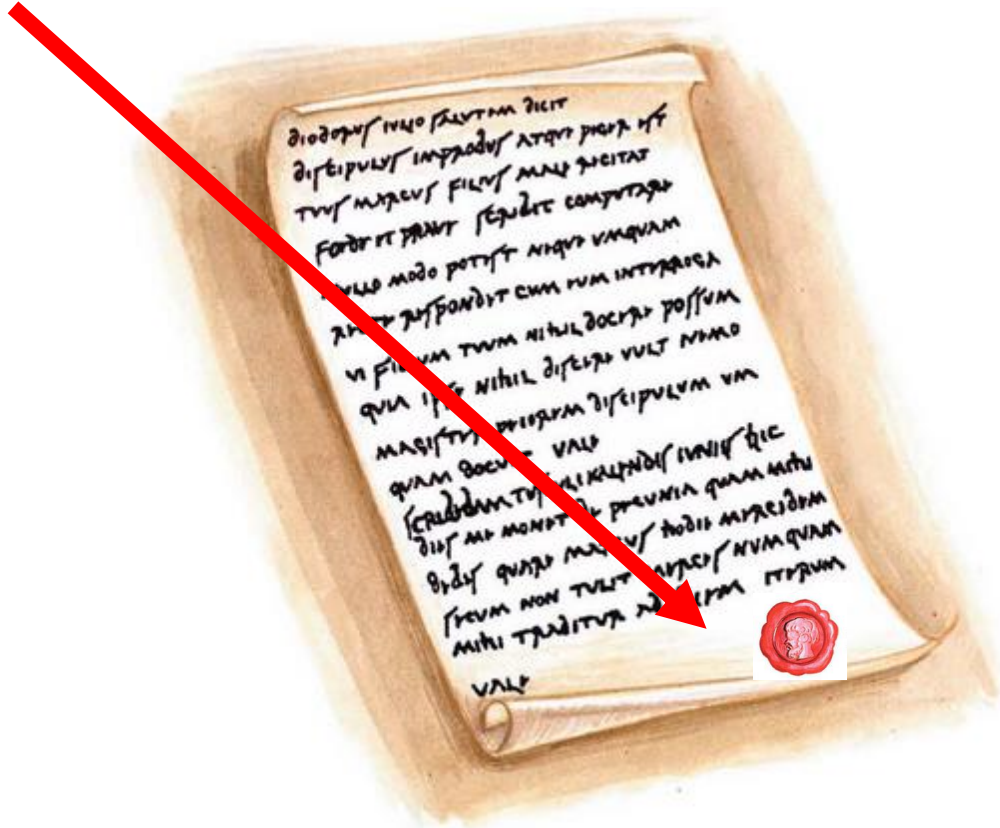 diodorus iulio salutem dicit
discipulus improbus atque piger est
tuus marcus filius male recitat
foede et prave scribit computare
nullo modo potest neque umquam
recte respondet cum eum interroga
vi filium tuum nihil docere possum
quia ipse nihil discere vult nemo
magister peiorem discipulum um
quam docuit vale
scribebam tusculi kalendis iuniis hic
dies me monet de pecunia quam mihi
debes quare marcus hodie mercedem
secum non tulit merces numquam
mihi traditur iterum
vale